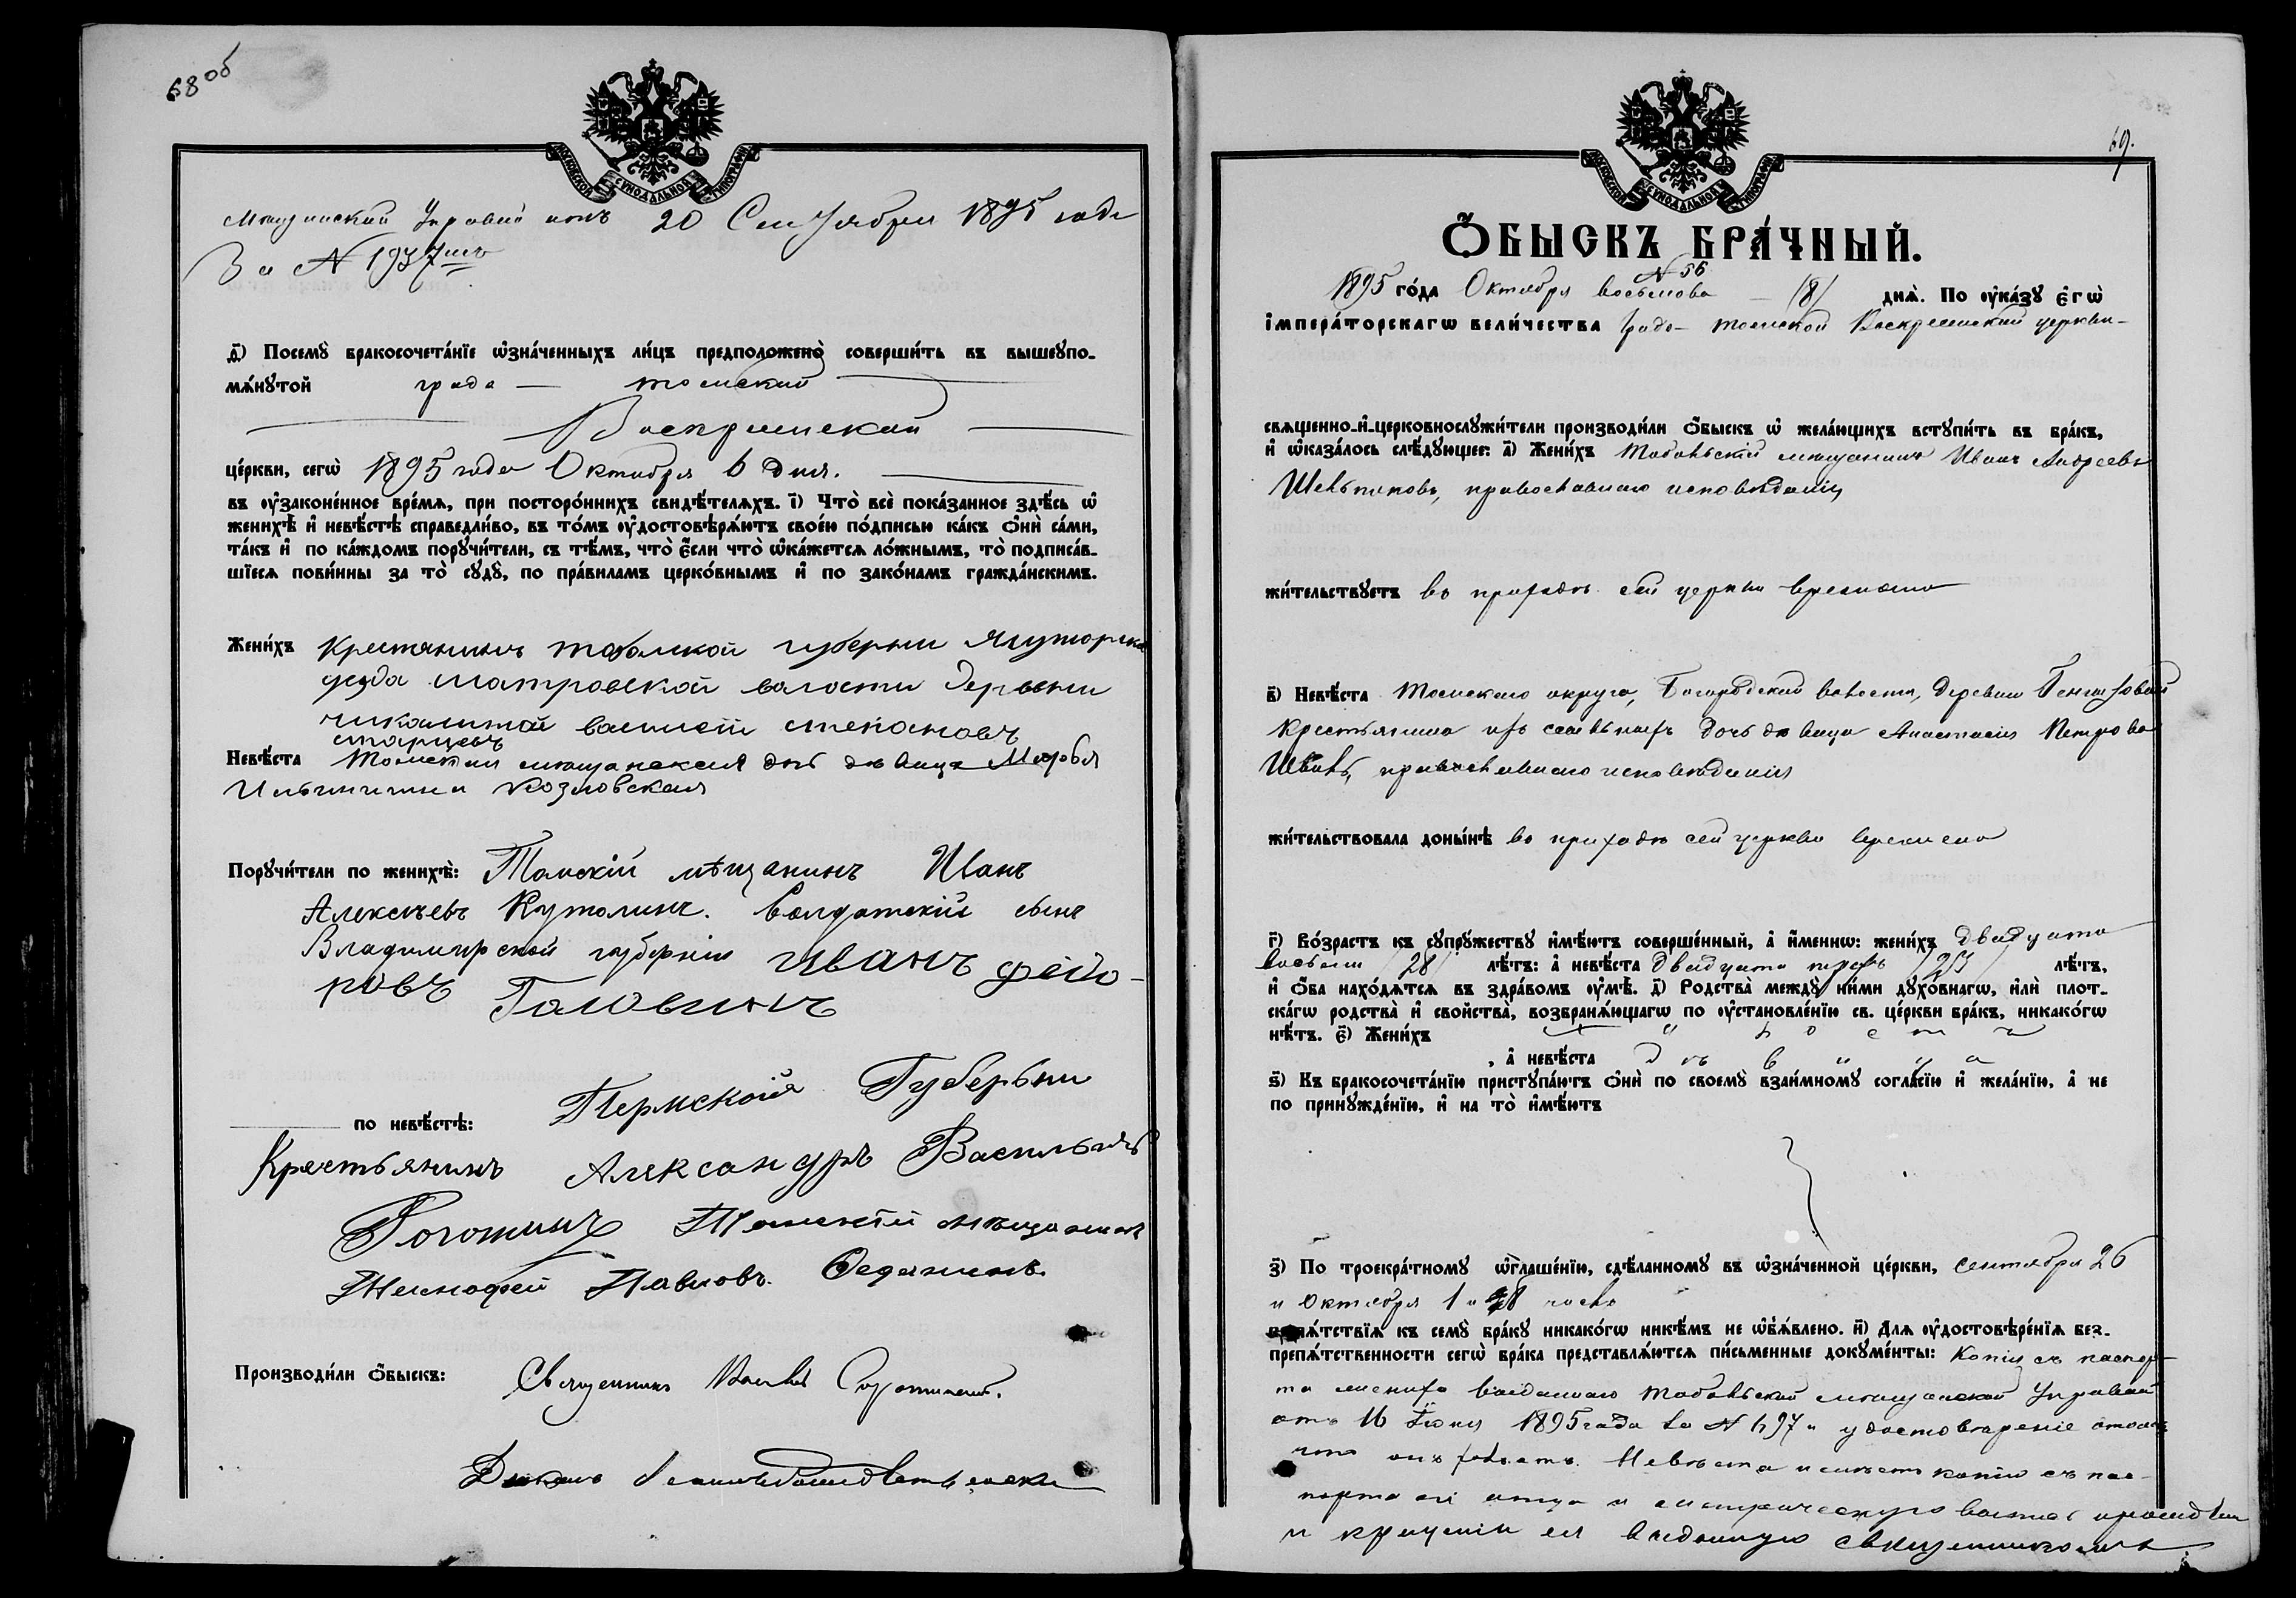 68 об
МОСКОВСКОЙ СѴНОДАЛЬНОЙ ТИПОГРАФІИ
Мѣщанской Управы отъ 20 Сентября 1895 года
За № 1937мъ
д҃і) Посемꙋ̀ бракосочета́нїе ѡ҆зна́ченныхъ ли́цъ предположено̀ соверши́ть въ вышеꙋпо-
мѧ́нꙋтой града — Томской
Воскресенской
це́ркви, сегѡ̀ 1895 года Октября 6 дня.
въ ᲂу҆законе́нное вре́мѧ, при посторо́ннихъ свидѣ́телѧхъ. і҃) Что̀ всѐ пока́занное здѣ́сь ѡ҆
женихѣ̀ и҆ невѣ́стѣ справедли́во, въ то́мъ ᲂу҆достовѣрѧ́ютъ свое́ю по́дписью ка́къ ѻ҆нѝ са́ми,
та́къ и҆ по ка́ждомъ порꙋчи́тели, съ тѣ́мъ, что̀ є҆́сли что̀ ѡ҆ка́жетсѧ ло́жнымъ, то̀ подписа́в-
шїесѧ пови́нны за то̀ сꙋдꙋ̀, по пра́виламъ церко́внымъ и҆ по зако́намъ гражда́нскимъ.
Жени́хъ Крестянинъ тоболской губерни Ялуторска
уезда шатровской волости дервени
василей степановъ
старцевъ
Невѣ́ста Томская мѣщанская дочь дѣвица
Ильинична Козловская
Порꙋчи́тели по женихѣ̀: Томскій мѣщанинъ Иванъ
Алексѣевъ Кутолинъ. Солдатскій сынъ
Владимирской губерніи Иванъ Фейо-
ровъ Головинъ
по невѣ́стѣ: Пермской Губерьни
Крестьянинъ Александръ Васильевъ
Рогожинъ Томскій мѣщанинъ
Павловъ.
Производи́ли ѻ҆́быскъ: Священникъ
Діаконъ
69.
МОСКОВСКОЙ СѴНОДАЛЬНОЙ ТИПОГРАФІИ
Ѻ҆́БЫСКЪ БРА́ЧНЫЙ.
№ 56
1895 го́да Октября восьмова — /8/ днѧ̀. По ᲂу҆ка́зꙋ є҆гѡ̀
і҆мпера́торскагѡ вели́чества Градо- Томской Воскресенской церкви-
свѧщенно-и҆-церковнослꙋжи́тели производи́ли ѻ҆́быскъ ѡ҆ жела́ющихъ встꙋпи́ть въ бра́къ,
и҆ ѡ҆каза́лось слѣ́дꙋющее: а҃) Жени́хъ Тобольскій мѣщанинъ Иванъ Андреевъ
православнаго исповѣданія
жи́тельствꙋетъ въ приходѣ сей церкви временно
в҃) Невѣ́ста Томскаго округа, Богородской волости, деревни
Крестьянина изъ ссыльныхъ дочь дѣвица Анастасія Петрова
православнаго исповѣданія
жи́тельствовала доны́нѣ въ приходѣ сей церкви временно
г҃) Во́зрастъ къ сꙋпрꙋ́жествꙋ и҆мѣ́ютъ соверше́нный, а҆ и҆́меннѡ: жени́хъ двадцати
восьми /28/ лѣ́тъ: а҆ невѣ́ста двадцати трехъ /23/ лѣ́тъ,
и҆ ѻ҆́ба нахо́дѧтсѧ въ здра́вомъ ᲂу҆мѣ̀. д҃) Родства̀ междꙋ̀ ни́ми дꙋхо́внагѡ, и҆лѝ плот-
ска́гѡ родства̀ и҆ свойства̀, возбранѧ́ющагѡ по ᲂу҆становле́нїю св. це́ркви бра́къ, никако́гѡ
нѣ́тъ. є҃) Жени́хъ холостъ
, а҆ невѣ́ста дѣвица
ѕ҃) Къ бракосочета́нїю пристꙋпа́ютъ ѻ҆нѝ по своемꙋ̀ взаи́мномꙋ согла́сїю и҆ жела́нїю, а҆ не
по принꙋжде́нїю, и҆ на то̀ и҆мѣ́ютъ
з҃) По троекра́тномꙋ ѡ҆глаше́нїю, сдѣ́ланномꙋ въ ѡ҆зна́ченной це́ркви, Сентября 26
и Октября 1 и 8 числъ
препѧ́тствїѧ къ семꙋ̀ бра́кꙋ никако́гѡ никѣ́мъ не ѡ҆б̾ѧ́влено. и҃) Длѧ ᲂу҆достовѣре́нїѧ без-
препѧ́тственности сегѡ̀ бра́ка представлѧ́ютсѧ пи́сьменные докꙋме́нты: Копія съ паспор-
та жениха выданнаго Тобольской мѣщанской Управой
отъ 16 Іюня 1895 года за № 697 и удостовѣреніе о томъ
что онъ холостъ. Невѣста имѣетъ копію съ пас-
порта ея отца и метрическую
и крещеніи ея выданную священникомъ